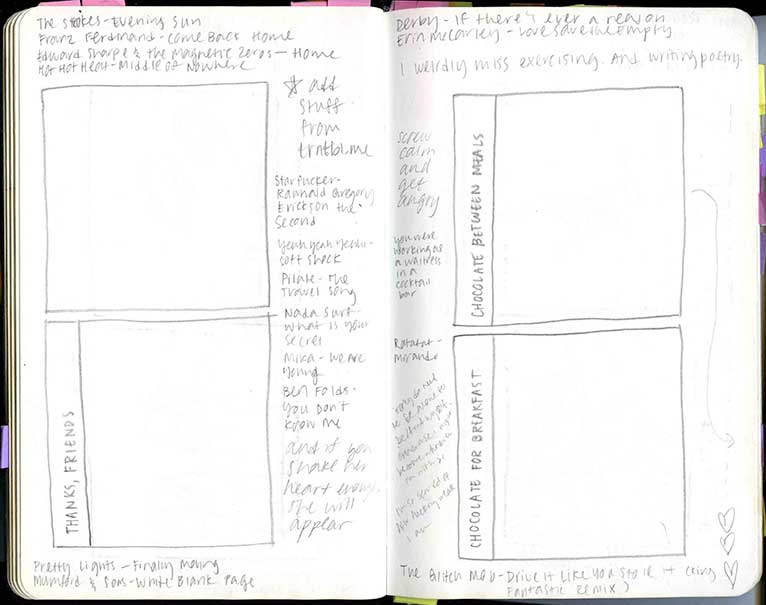 The Strokes - Evening Sun
Franz Ferdinand - Come Back Home
Edward Sharpe & the Magnetic Zeros - Home
Hot Hot Heat - Middle of Nowhere
☆ add
stuff
from
trntbl.me
Starfucker -
Rawnald Gregory
Erickson the
Second
Yeah Yeah Yeahs -
Soft Shock
Pilate - The
Travel Song
Nada Surf -
What is your
Secret
Mika - We are
Young
Ben Folds -
You Don't
Know Me
and if you
shake her
heart enough
she will
appear
THANKS, FRIENDS
Pretty Lights - Finally Moving
Mumford & Sons - White Blank Page
Derby - If there's ever a reason
Erin McCarley - Love Save the Empty
I weirdly miss exercising. And writing poetry.
screw
calm
and
get
angry
you were
working as
a waitress
in a
cocktail
bar
CHOCOLATE BETWEEN MEALS
Ratatat -
Mirando
I'm so scared of
how fucking weak
I am
CHOCOLATE FOR BREAKFAST
The Glitch Mob - Drive it Like You Stole it (King
Fantastic Remix)